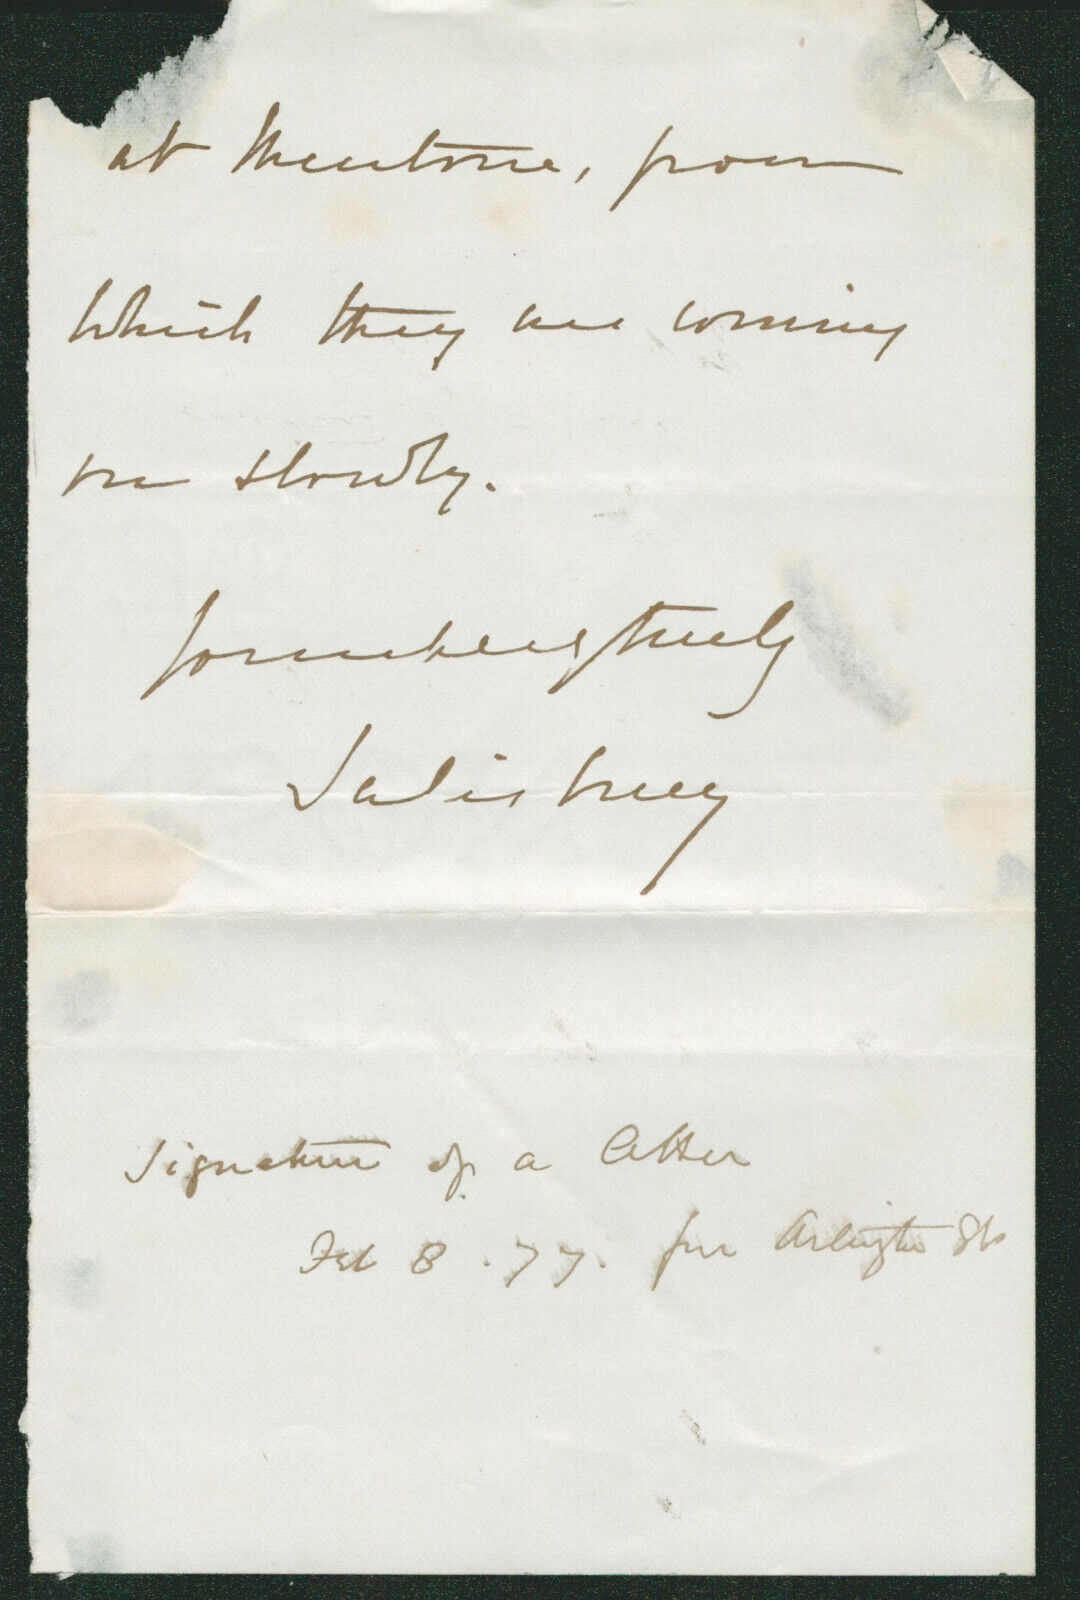 at Mentone, from
which they are coming
on slowly.
Yours very truly
Salisbury
Signature of a letter
Feb 8. 77. from Arlington St